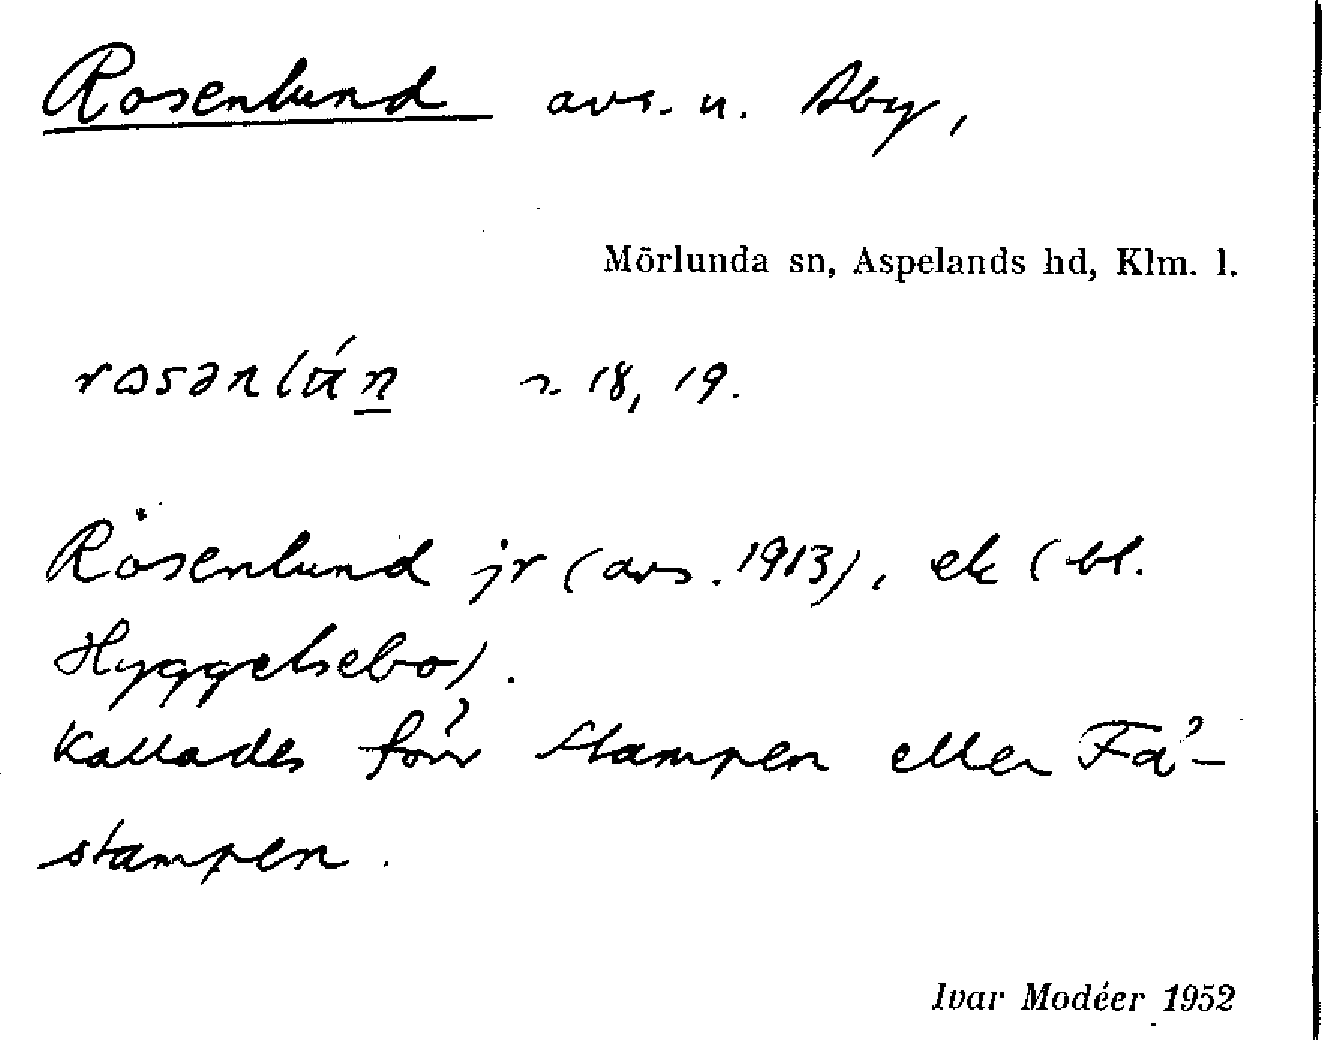 Rosenlund avs. u. Åby,
Mörlunda sn, Aspelands hd, Klm. l.
rosənlún 18, 19.
Rosenlund jr (avs. 1913), ek (bl.
Hyggelsebo).
Kallades förr Stampen eller Få-
stampen.
Ivar Modéer 1952